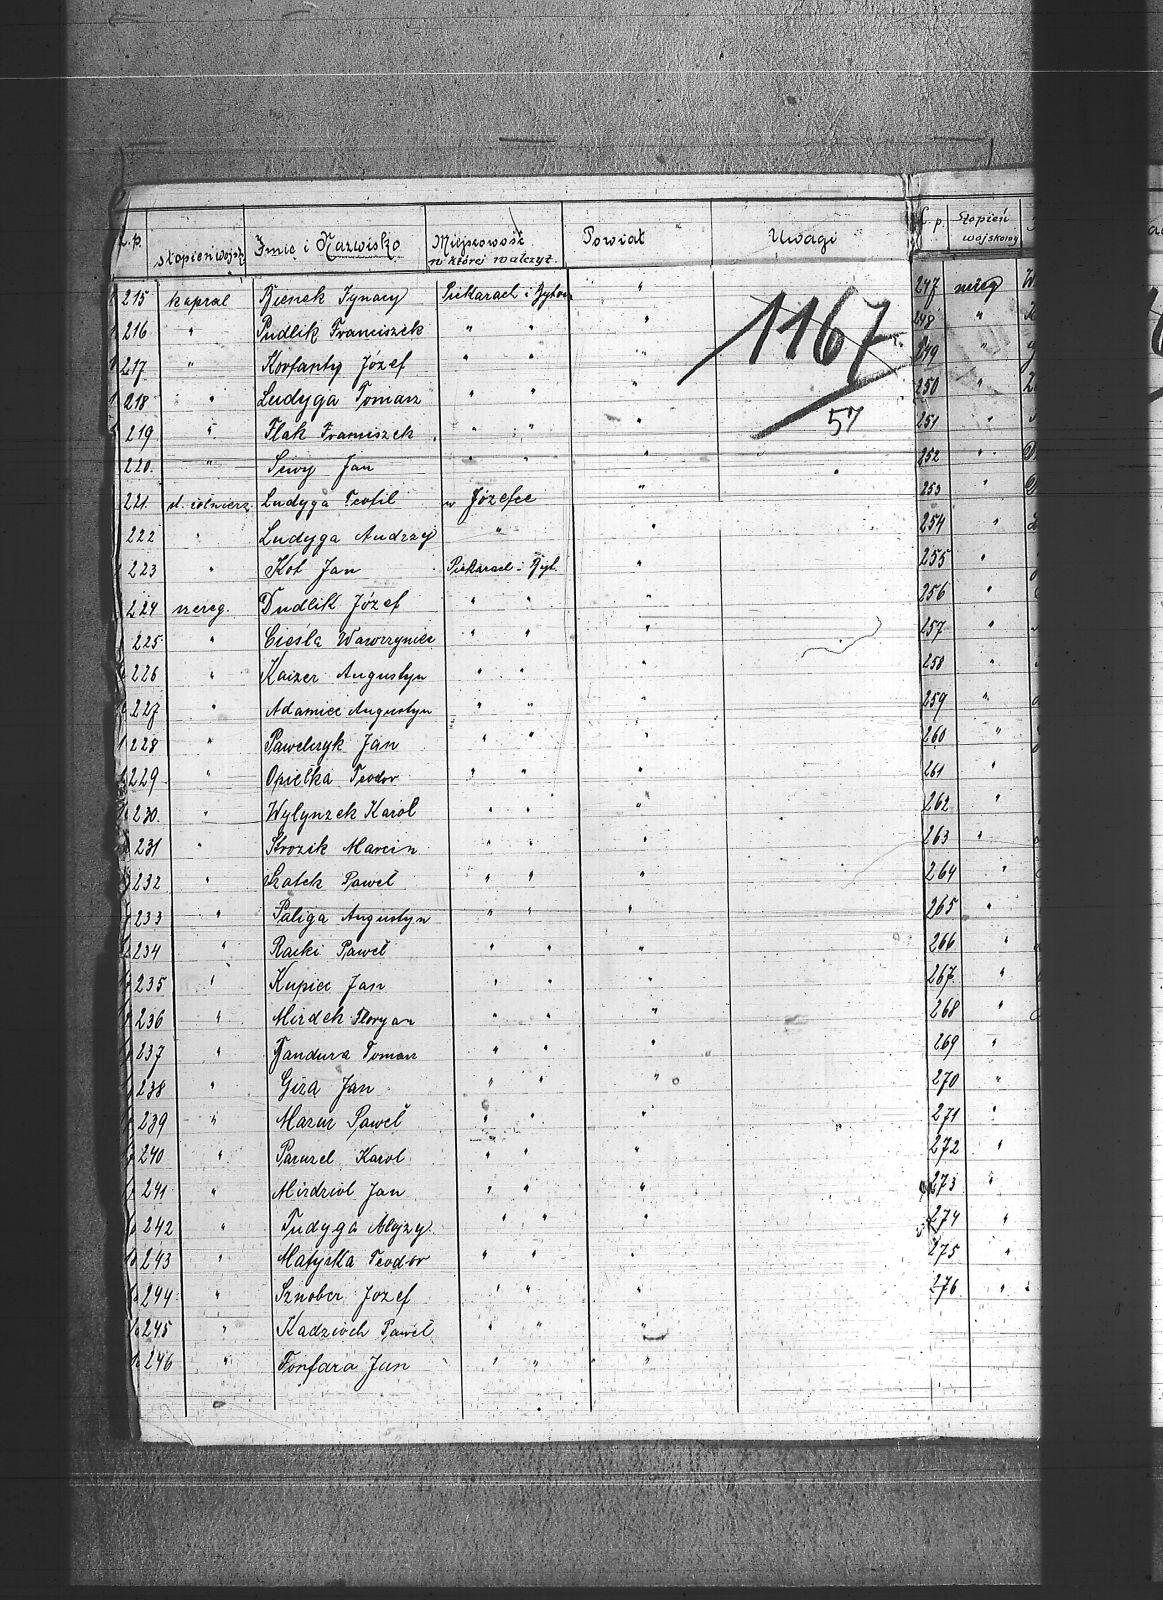 L.p. stopień wojsk. Imię i Nazwisko Miejscowość w której walczył. Powiat Uwagi
1167
57
215 kapral Ignacy Piekarach i "
216 " Pudlik Franciszek " " "
217 " Korfanty Józef " " "
218 " Ludyga Tomasz " " "
219 " Flak Franciszek " " "
220. " Siwy Jan " " "
221. st. żołnierz Ludyga Teofil w Józefce "
222 " Ludyga Andrzej " "
223 " Kot Jan Piekarach i "
224 szereg. Dudlik Józef " " "
225 " Cieśla Wawrzyniec " " "
226 " Kaizer Augustyn " " "
227 " Adamiec Augustyn " " "
228 " Pawelczyk Jan " " "
229 " Opielka Teodor " " "
230. " Wylynzek Karol " " "
231 " Marcin " " "
232 " Paweł " " "
233 " Paliga Augustyn " " "
234 " Racki Paweł " " "
235 " Kupiec Jan " " "
236 " Mirdek Floryan " " "
237 " Bandura Toman " " "
238 " Giza Jan " " "
239 " Mazur Paweł " " "
240 " Paruzel Karol " " "
241 " Mirdziol Jan " " "
242 " Tudyga Alojzy " " "
243 " Matyska Teodor " " "
244 " Sznober Jozef " " "
245 " Kadzioch Paweł " " "
246 " Fonfara Jan " " "
L.p. Stopień wojskowy
247 szereg
248 "
249 "
250 "
251 "
252 "
253 "
254 "
255 "
256 "
257 "
258 "
259 "
260 "
261 "
262 "
263 "
264 "
265 "
266 "
267. "
268 "
269 "
270 "
271 "
272 "
273 "
274 "
275 "
276 "